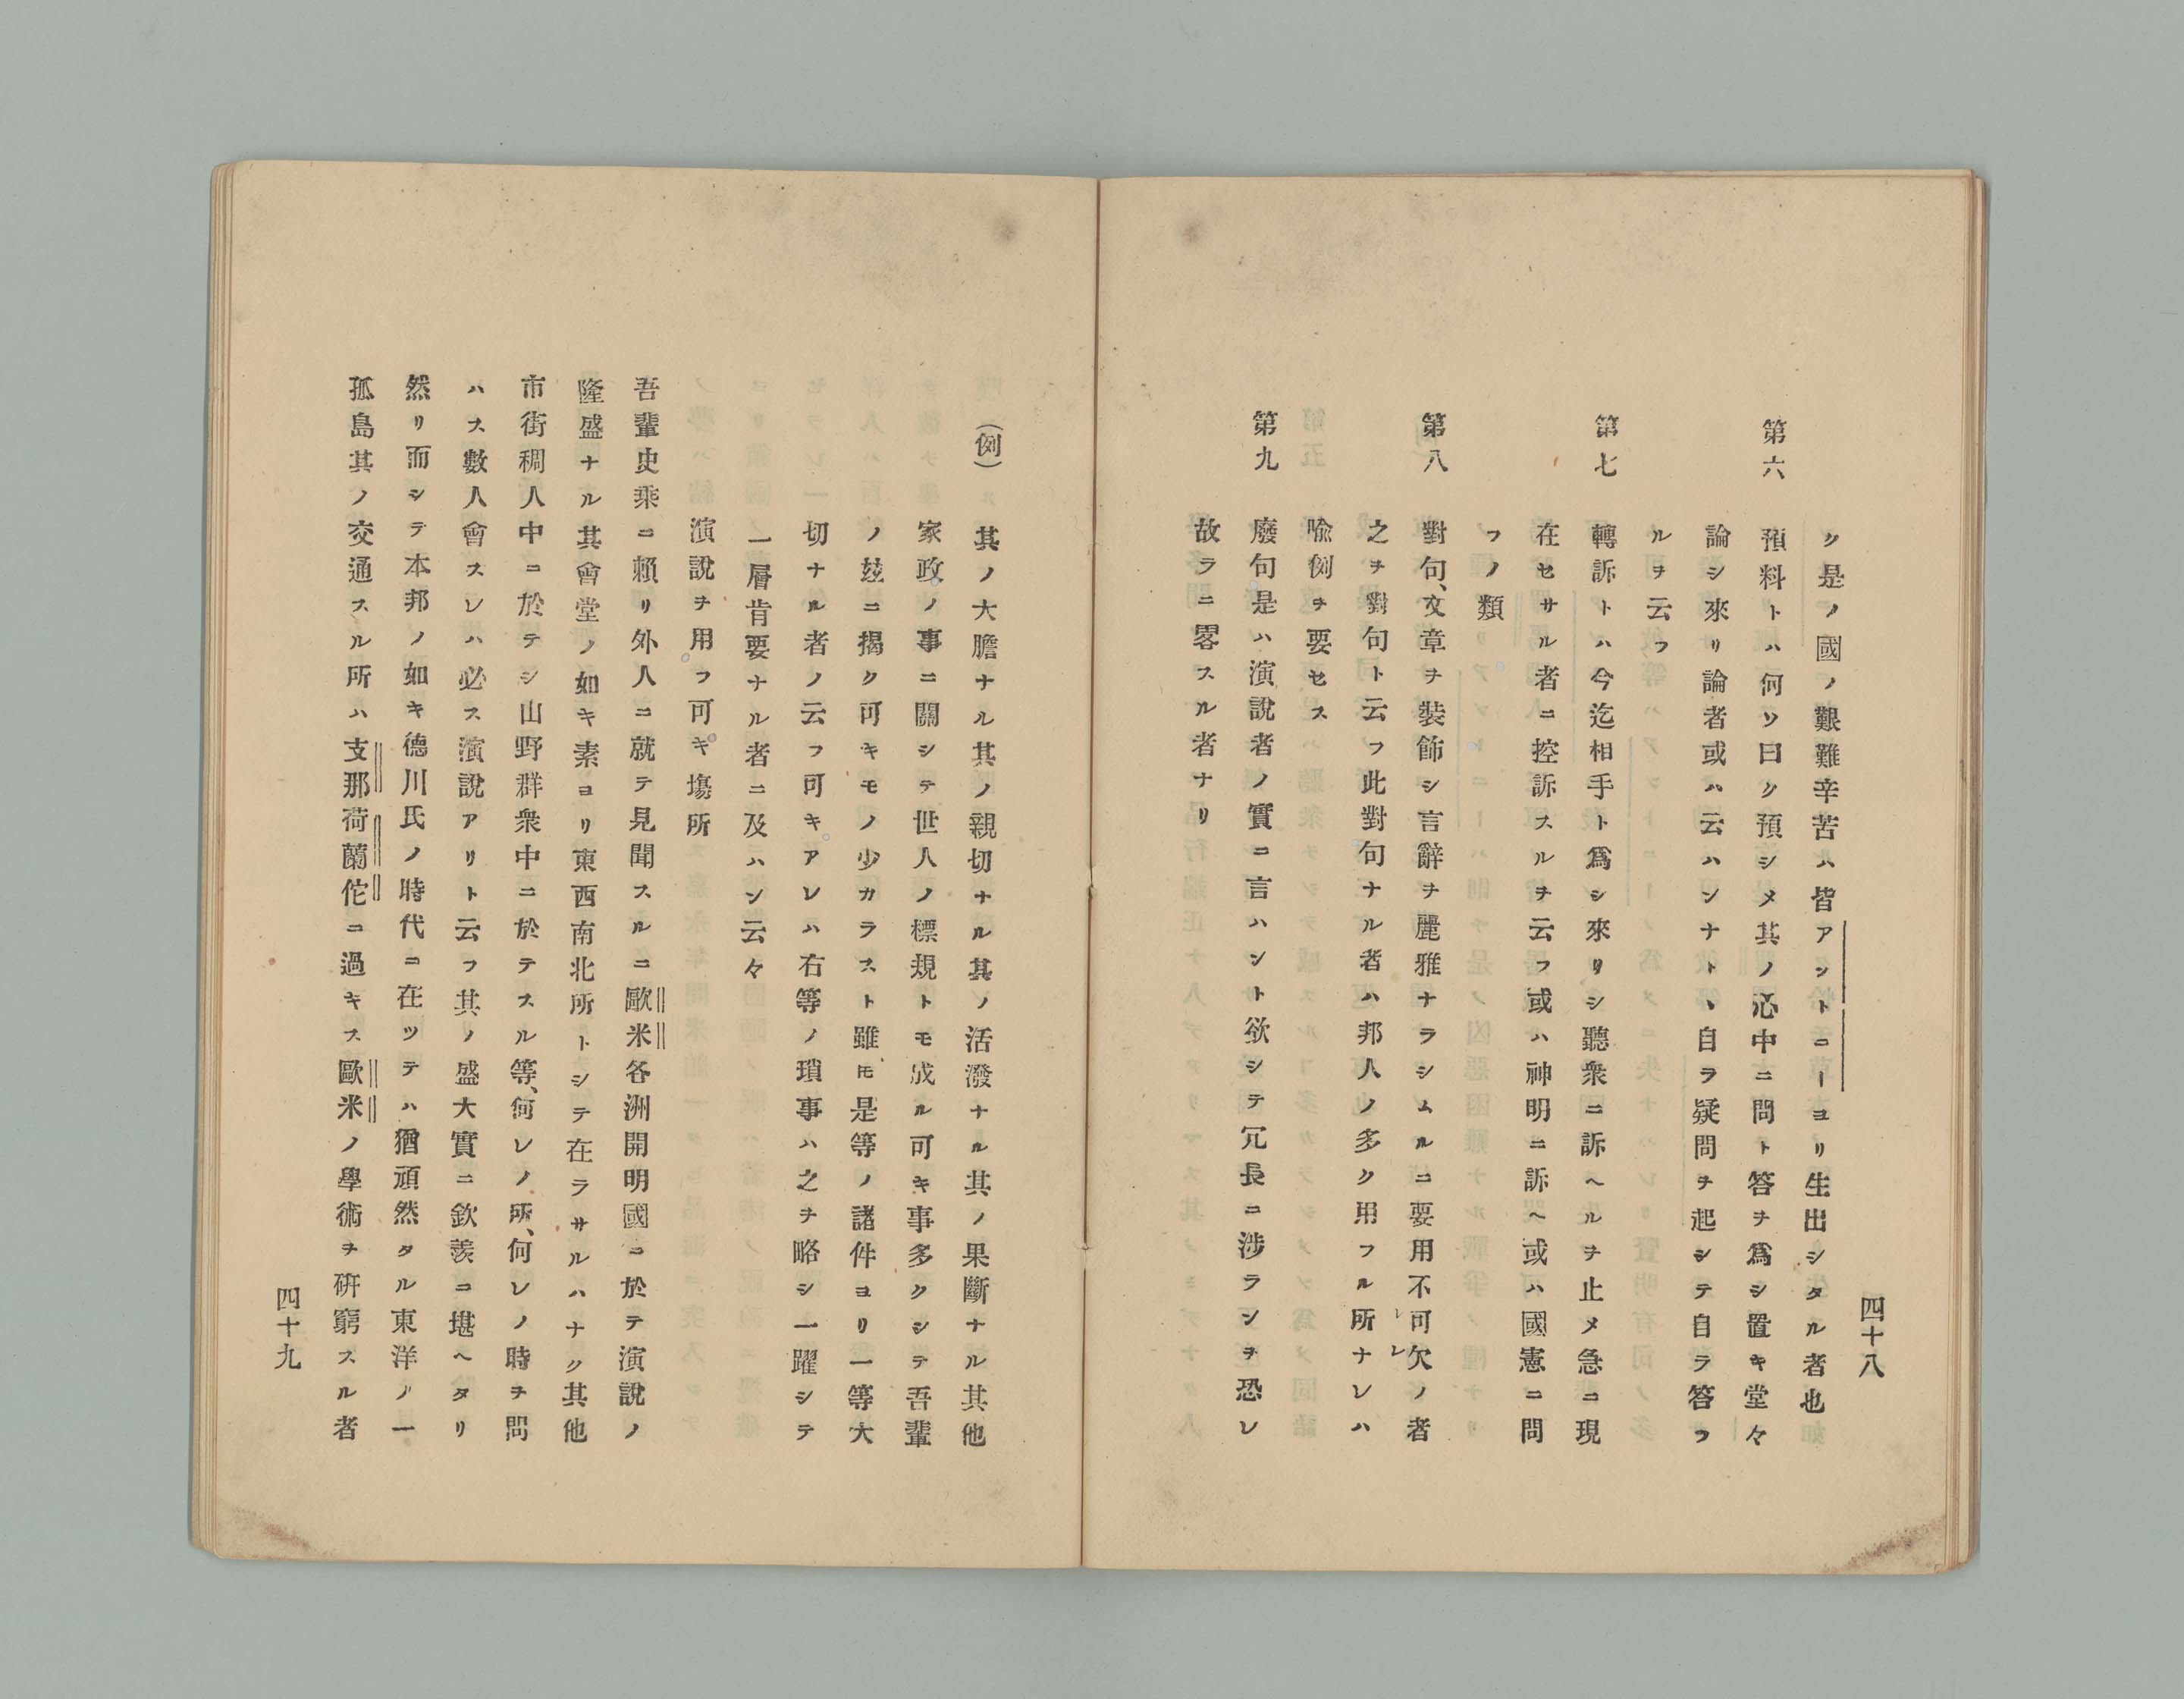 四十八
ク是ノ國ノ艱難辛苦ハ皆アントニーヨリ生出シタル者也
第六 預料トハ何ソ曰ク預シメ其ノ心中ニ問ト答ヲ爲シ置キ堂々
論シ來リ論者或ハ云ハンナト、自ラ疑問ヲ起シテ自ラ答フ
ルヲ云フ
第七 轉訴トハ今迄相手ト爲シ來リシ聽衆ニ訴ヘルヲ止メ急ニ現
在セサル者ニ控訴スルヲ云フ或ハ神明ニ訴ヘ或ハ國憲ニ問
フノ類
第八 對句、文章ヲ裝飾シ言辭ヲ麗雅ナラシムルニ要用不レ可レ欠ノ者
之ヲ對句ト云フ此對句ナル者ハ邦人ノ多ク用フル所ナレハ
喩例ヲ要セス
第九 廢句是ハ演說者ノ實ニ言ハント欲シテ冗長ニ涉ランヲ恐レ
故ラニ畧スル者ナリ
(例) 其ノ大膽ナル其ノ親切ナル其ノ活潑ナル其ノ果斷ナル其他
家政ノ事ニ關シテ世人ノ標規トモ成ル可キ事多クシテ吾輩
ノ玆ニ揭ク可キモノ少カラスト雖𪜈是等ノ諸件ヨリ一等大
切ナル者ノ云フ可キアレハ右等ノ瑣事ハ之ヲ略シ一躍シテ
一層肯要ナル者ニ及ハン云々
演說ヲ用フ可キ塲所
吾輩史乘ニ賴リ外人ニ就テ見聞スルニ歐米各洲開明國ニ於テ演說ノ
隆盛ナル其會堂ノ如キ素ヨリ東西南北所トシテ在ラサルハナク其他
市街稠人中ニ於テシ山野群衆中ニ於テスル等、何レノ所、何レノ時ヲ問
ハス數人會スレハ必ス演說アリト云フ其ノ盛大實ニ欽羨ニ堪ヘタリ
然リ而シテ本邦ノ如キ德川氏ノ時代ニ在ツテハ猶頑然タル東洋ノ一
孤島其ノ交通スル所ハ支那荷蘭佗ニ過キス歐米ノ學術ヲ硏窮スル者
四十九